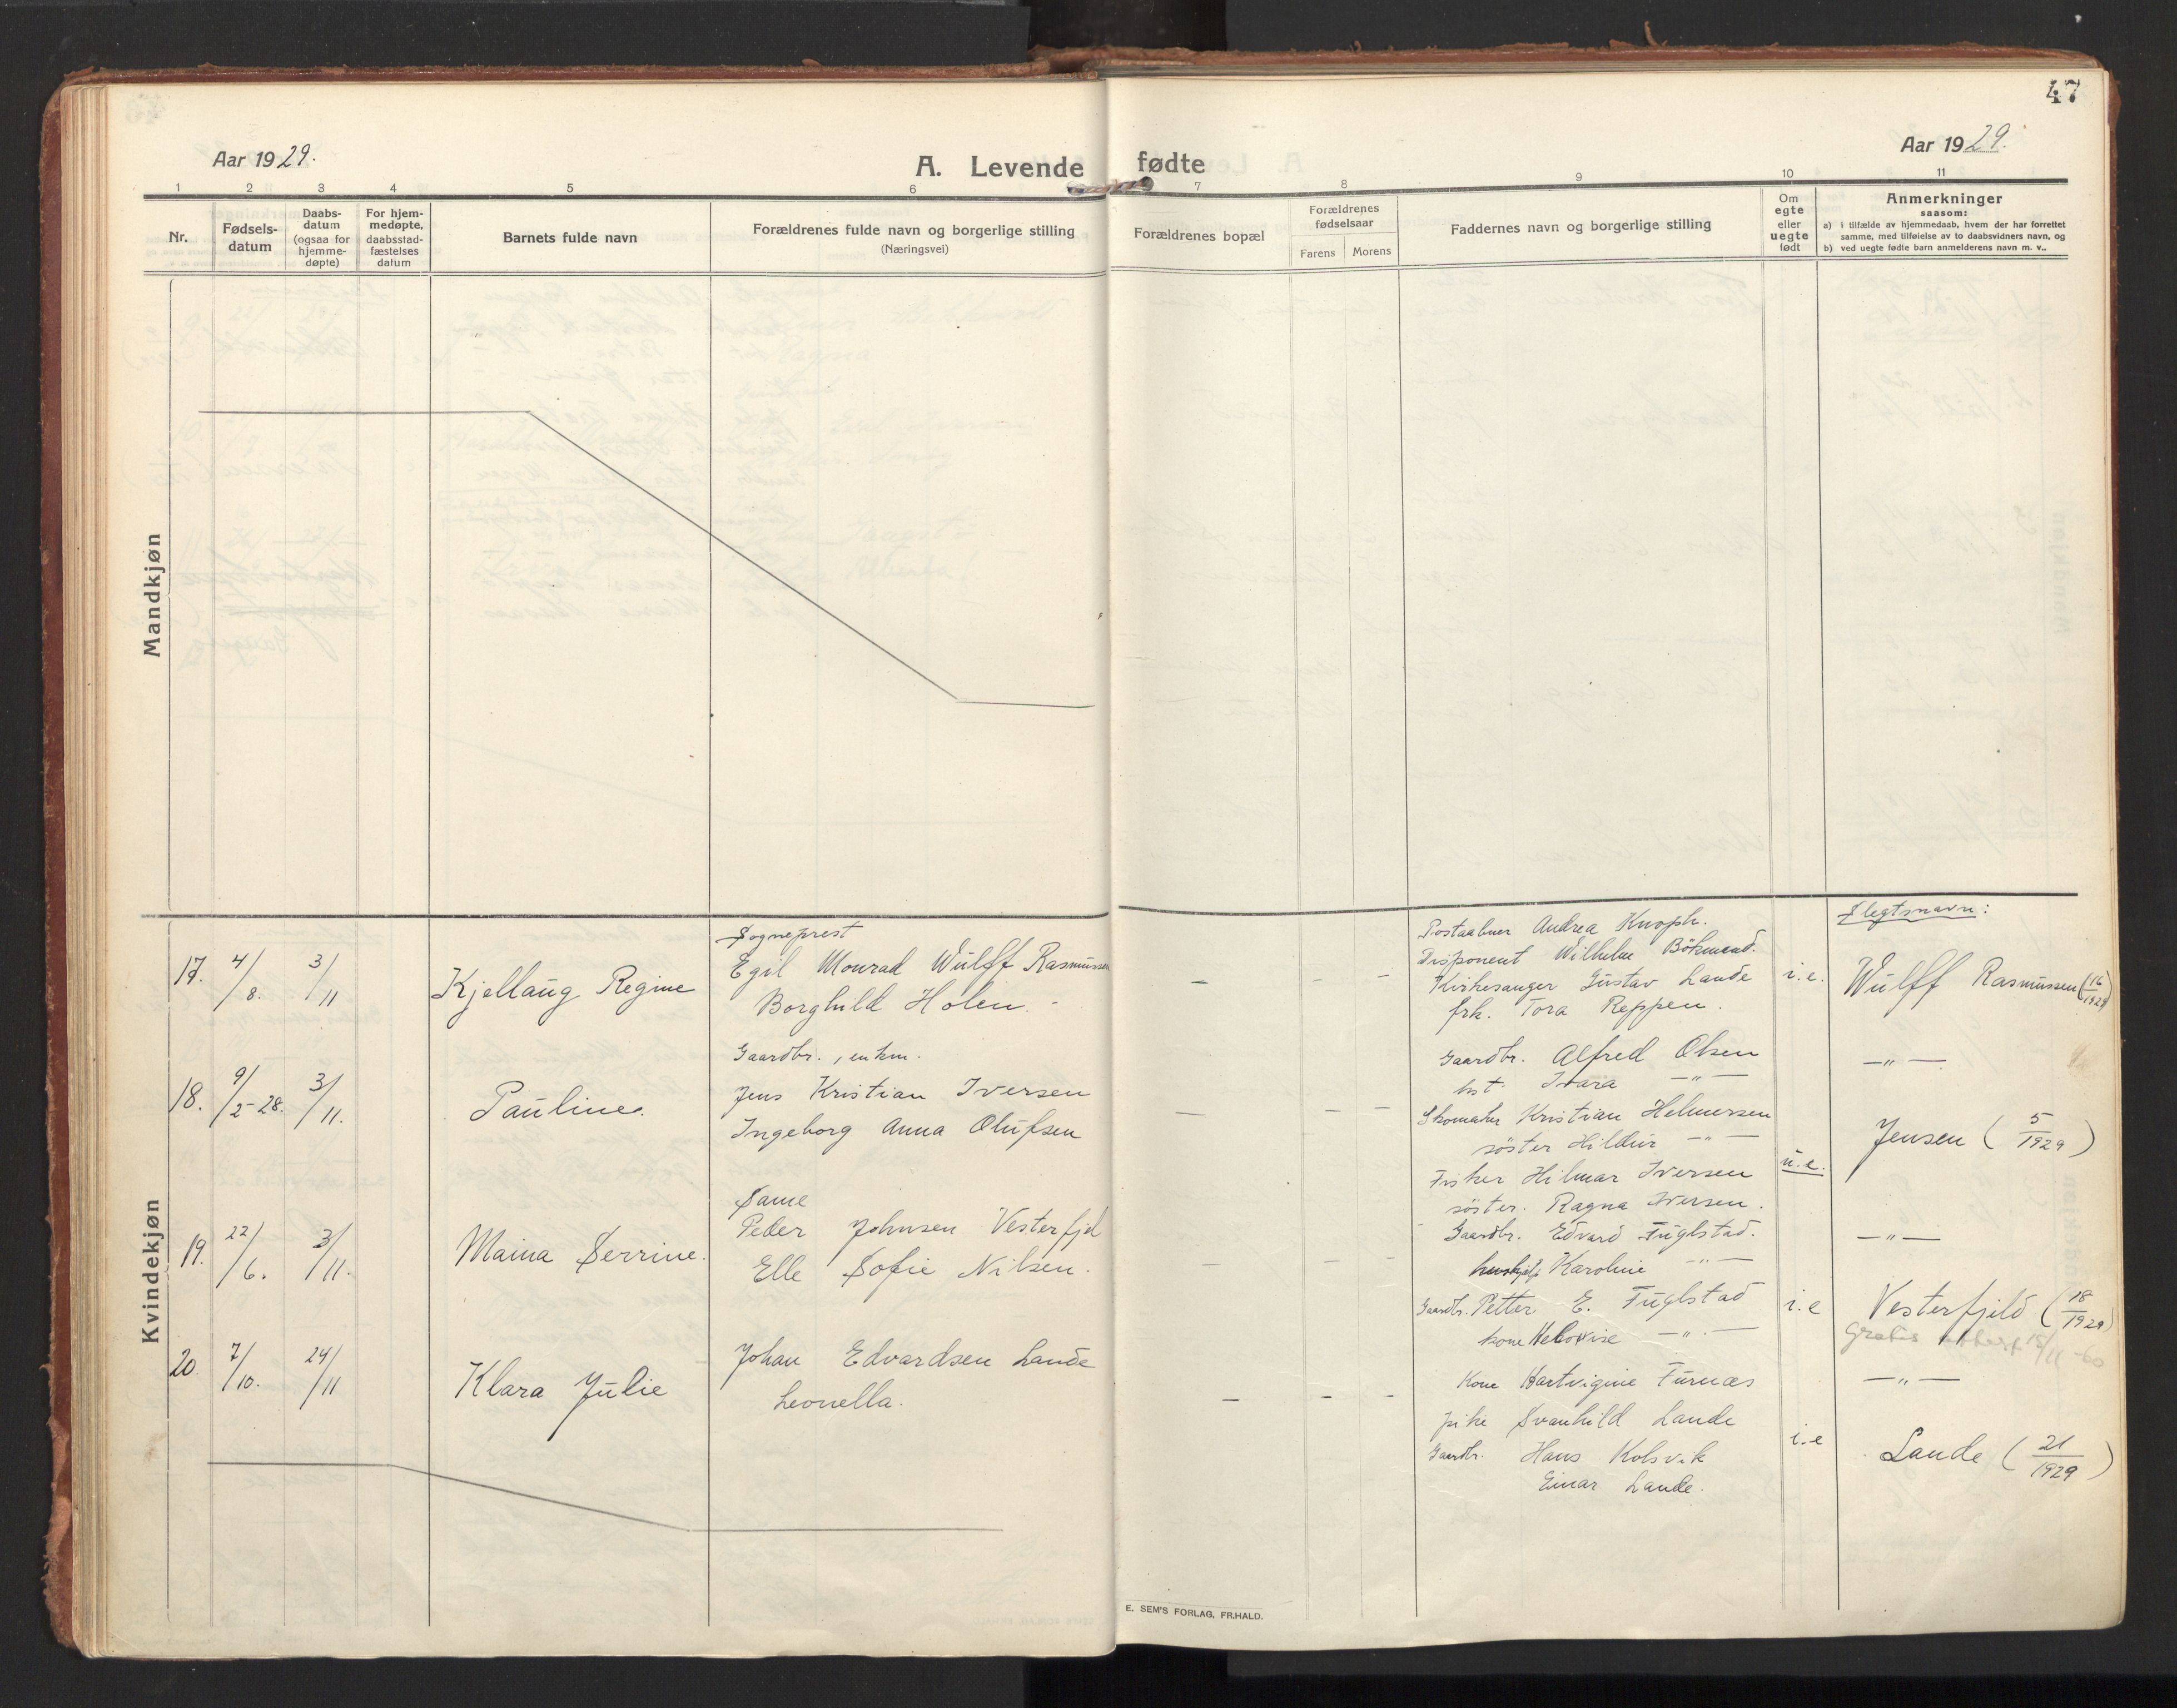 47
Aar 1929.
A. Levende fødte
Aar 1929.
1 2 3 4 5 6 7 8 9 10 11
Nr.
Fødsels-
datum
Daabs-
datum
(ogsaa for
hjemme-
døpte)
For hjem-
medøpte,
daabsstad-
fæstelses
datum
Barnets fulde navn
Forældrenes fulde navn og borgerlige stilling
(Næringsvei)
Forældrenes bopæl
Forældrenes
fødselsaar
Farens Morens
Faddernes navn og borgerlige stilling
Om
egte
eller
uegte
født
Anmerkninger
saasom:
a) i tilfælde av hjemmedaab, hvem der har forrettet
samme, med tilføielse av to daabsvidners navn, og
b) ved uegte fødte barn anmelderens navn m. v..
Mandkjøn
Kvindekjøn
17. 4/8. 3/11
Kjellaug Regine
Sogneprest
Egil Monrad Wulff Rasmussen
Borghild Holen. -
- - -
Postaabner Andrea Knoph.
Disponent Wilhelm Bökmand.
Kirkesanger Gustav Lande
frk. Tora Reppen.
i.e.
Slegtsnavn:
Wulff Rasmussen (16/1929)
18. 9/2-28. 3/11.
Pauline.
Gaardbr., enkm.
Jens Kristian Iversen
Ingeborg Anna Olufsen
- - -
Gaardbr. Alfred Olsen
hst. Ivara -"-
Skomaker Kristian Helmersen
söster Hildur -"-
Fisker Hilmar Iversen
söster. Ragna Iversen.
u.e.
-"-
Jensen (5/1929)
19. 22/6. 3/11.
Maina Serrine.
Same
Peder Johnsen Vesterfjel
Elle Sofie Nilsen.
- - -
Gaardbr. Edvard Fuglstad.
Karoline -"-
Gaardbr. Petter E. Fuglstad
kone Helovise -"-
i.e
-"-
Vesterfjeld (18/1929)
Gratis attest 15/11-60
20. 7/10. 24/11
Klara Julie
Johan Edvardsen Lande
Leonella.
- - -
Kone Hartvigine Furnæs
pike Svanhild Lande
Gaardbr. Hans Kolsvik
Einar Lande.
i.e
-"-
Lande (21/1929)
E. SEM'S FORLAG, FR.HALD.